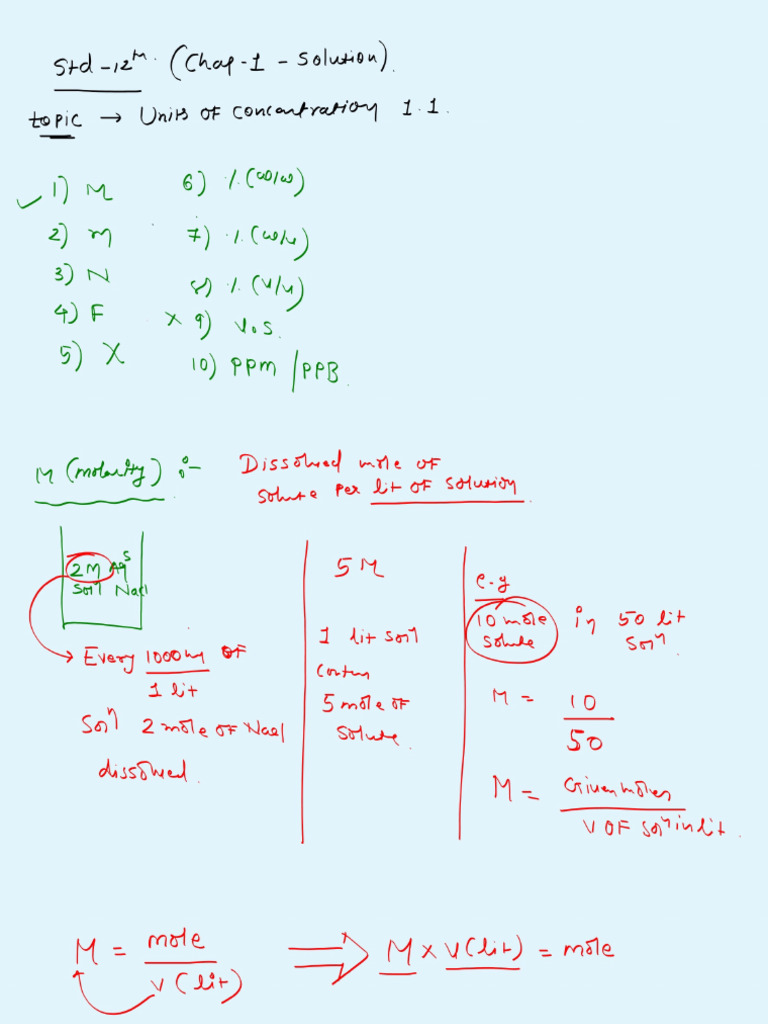 Std-12th. (Chap-1 - Solution).
topic → Units of Concentration 1.1.
1) M
2) m
3) N
4) F
5) X
6) %(w/w)
7) %(w/v)
8) %(v/v)
x 9) V.S.
10) PPM/PPB.
M (molarity) :-
Dissolved mole of
solute per lit of solution.
2M Aqs
Soln Nacl
→ Every 1000ml of
1 lit
Soln 2 mole of Nacl
dissolved.
5M
1 lit soln
contain
5 mole of
solute.
e.g
10 mole in 50 lit
solute soln.
M = 10
50
M = Given moles
V OF soln in lit.
M = mole
V (lit)
⇒ M x V (lit) = mole